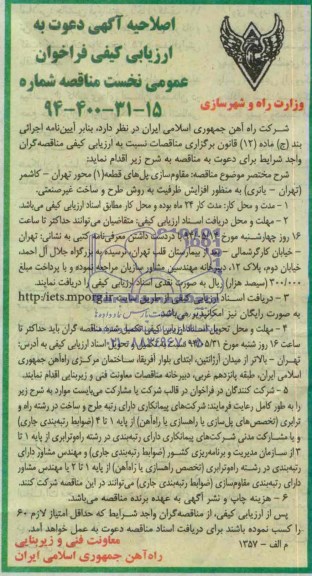 اصلاحیه آگهی دعوت به
ارزیابی کیفی فراخوان
عمومی نخست مناقصه شماره
۹۴-۴۰۰-۳۱-۱۵
وزارت راه و شهرسازی
شرکت راه آهن جمهوری اسلامی ایران در نظر دارد، بنابر آیین‌نامه اجرائی
بند (ج) ماده (۱۲) قانون برگزاری مناقصات نسبت به ارزیابی کیفی مناقصه‌گران
واجد شرایط برای دعوت به مناقصه به شرح زیر اقدام نماید:
شرح مختصر موضوع مناقصه: مقاوم‌سازی پل‌های قطعه(۱) محور تهران - کاشمر
(تهران - یاتری) به منظور افزایش ظرفیت به روش طرح و ساخت غیرصنعتی.
۱ - مدت و محل کار: مدت کار ۲۴ ماه بوده و محل کار مطابق اسناد ارزیابی کیفی می‌باشد.
۲ - مهلت و محل دریافت اسناد ارزیابی کیفی: متقاضیان می‌توانند حداکثر تا ساعت
۱۶ روز چهارشنبه مورخ با دردست داشتن معرفی‌نامه کتبی به نشانی: تهران
- خیابان کارگرشمالی - بیمارستان قلب تهران، نرسیده به بزرگراه جلال آل احمد،
خیابان دوم، پلاک ۱۲، دبیرخانه مهندسین مشاور سازیان مراجعه نموده و با پرداخت مبلغ
۳۰۰/۰۰۰ (سیصد هزار) ریال به صورت نقدی اسناد ارزیابی کیفی را دریافت نمایند.
۳ - دریافت اسناد ارزیابی کیفی از طریق سایت http://iets.mporg.ir
به صورت رایگان نیز امکانپذیر می‌باشد.
۴ - مهلت و محل تحویل اسناد ارزیابی کیفی تکمیل شده: مناقصه گران باید حداکثر تا
ساعت ۱۶ روز شنبه مورخ اسناد ارزیابی کیفی به آدرس:
تهران - بالاتر از میدان آرژانتین، ابتدای بلوار آفریقا، ساختمان مرکزی راه‌آهن جمهوری
اسلامی ایران، طبقه پانزدهم غربی، دبیرخانه مناقصات معاونت فنی و زیربنایی اقدام نمایند.
۵ - شرکت کنندگان در فراخوان در قالب شرکت یا مشارکت می‌بایست موارد به شرح زیر
را به طور کامل رعایت فرمایند: شرکت‌های پیمانکاری دارای رتبه طرح و ساخت در رشته راه و
ترابری (تخصص‌های پل‌سازی یا راهسازی یا راه‌آهن) از پایه ۱ تا ۴ (ضوابط رتبه‌بندی جاری)
و یا مشارکت مدنی شرکت‌های پیمانکاری دارای رتبه‌بندی در رشته راه‌وترابری از پایه ۱ تا
۳ از سازمان مدیریت و برنامه‌ریزی کشور (ضوابط رتبه‌بندی جاری) و مهندس مشاور دارای
رتبه‌بندی در رشته راه‌وترابری (تخصص راهسازی یا راه‌آهن) از پایه ۱ تا ۲ یا مهندس مشاور
دارای رتبه‌بندی مقاوم‌سازی (ضوابط رتبه‌بندی جاری) می‌توانند در این مناقصه شرکت کنند.
۶ - هزینه چاپ و نشر آگهی به عهده برنده مناقصه می‌باشد.
پس از ارزیابی کیفی، از مناقصه‌گران واجد شرایط که حداقل امتیاز لازم ۶۰
را کسب نموده باشند برای دریافت اسناد مناقصه دعوت به عمل خواهد آمد.
م الف - ۱۳۵۷
معاونت فنی و زیربنایی
راه‌آهن جمهوری اسلامی ایران